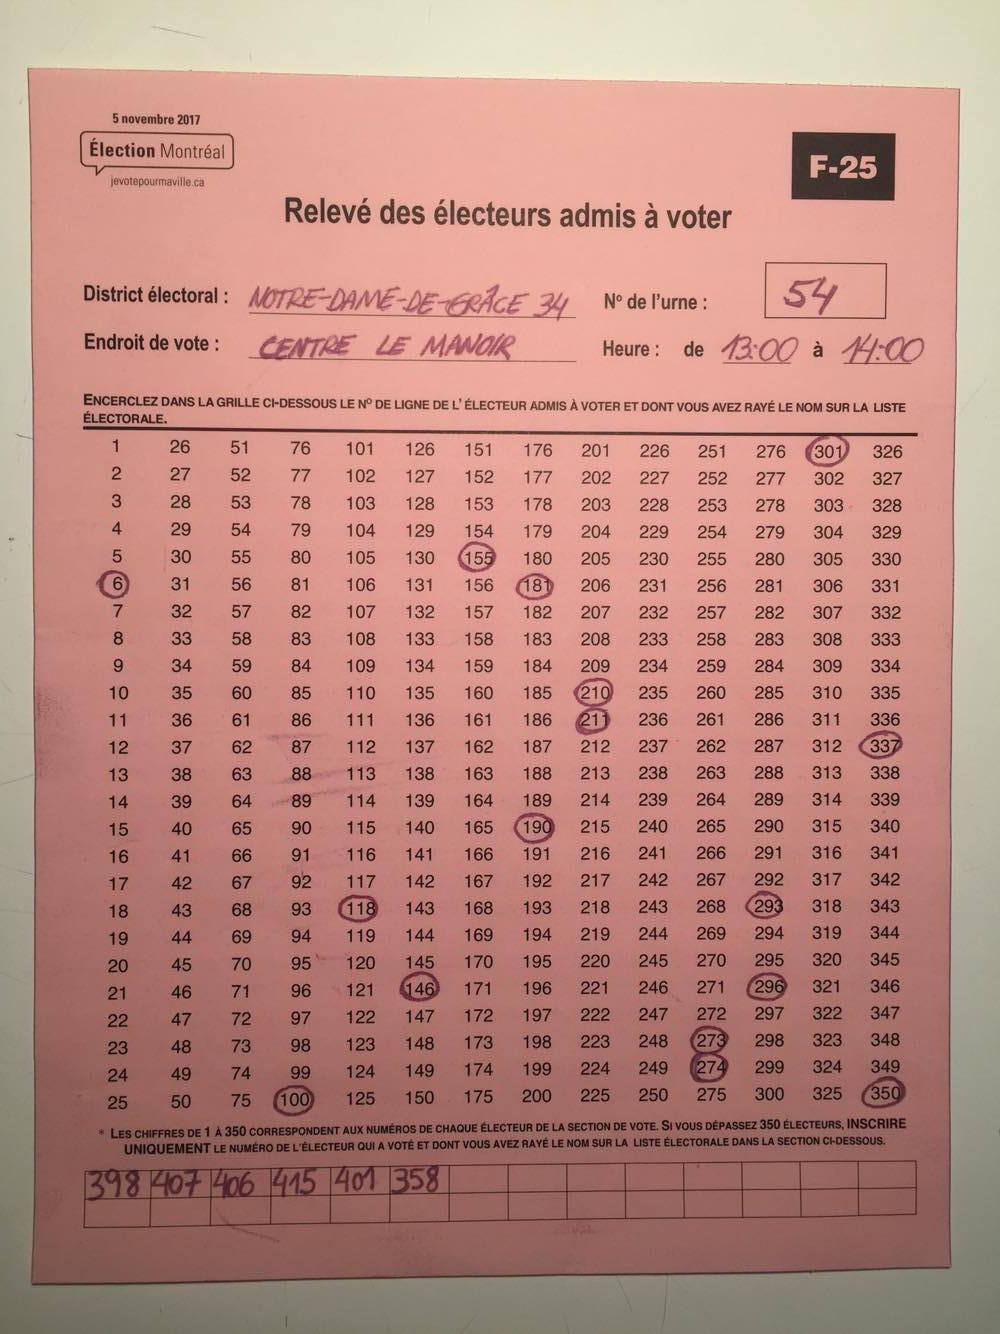 5 novembre 2017
Élection Montréal
jevotepourmaville.ca
F-25
Relevé des électeurs admis à voter
District électoral : NOTRE-DAME-DE-GRÂCE 34 Nº de l'urne : 54
Endroit de vote : CENTRE LE MANOIR Heure : de 13:00 à 14:00
ENCERCLEZ DANS LA GRILLE CI-DESSOUS LE Nº DE LIGNE DE L'ÉLECTEUR ADMIS À VOTER ET DONT VOUS AVEZ RAYÉ LE NOM SUR LA LISTE
ÉLECTORALE.
1 26 51 76 101 126 151 176 201 226 251 276 301 326
2 27 52 77 102 127 152 177 202 227 252 277 302 327
3 28 53 78 103 128 153 178 203 228 253 278 303 328
4 29 54 79 104 129 154 179 204 229 254 279 304 329
5 30 55 80 105 130 155 180 205 230 255 280 305 330
6 31 56 81 106 131 156 181 206 231 256 281 306 331
7 32 57 82 107 132 157 182 207 232 257 282 307 332
8 33 58 83 108 133 158 183 208 233 258 283 308 333
9 34 59 84 109 134 159 184 209 234 259 284 309 334
10 35 60 85 110 135 160 185 210 235 260 285 310 335
11 36 61 86 111 136 161 186 211 236 261 286 311 336
12 37 62 87 112 137 162 187 212 237 262 287 312 337
13 38 63 88 113 138 163 188 213 238 263 288 313 338
14 39 64 89 114 139 164 189 214 239 264 289 314 339
15 40 65 90 115 140 165 190 215 240 265 290 315 340
16 41 66 91 116 141 166 191 216 241 266 291 316 341
17 42 67 92 117 142 167 192 217 242 267 292 317 342
18 43 68 93 118 143 168 193 218 243 268 293 318 343
19 44 69 94 119 144 169 194 219 244 269 294 319 344
20 45 70 95 120 145 170 195 220 245 270 295 320 345
21 46 71 96 121 146 171 196 221 246 271 296 321 346
22 47 72 97 122 147 172 197 222 247 272 297 322 347
23 48 73 98 123 148 173 198 223 248 273 298 323 348
24 49 74 99 124 149 174 199 224 249 274 299 324 349
25 50 75 100 125 150 175 200 225 250 275 300 325 350
* LES CHIFFRES DE 1 À 350 CORRESPONDENT AUX NUMÉROS DE CHAQUE ÉLECTEUR DE LA SECTION DE VOTE. SI VOUS DÉPASSEZ 350 ÉLECTEURS, INSCRIRE
UNIQUEMENT LE NUMÉRO DE L'ÉLECTEUR QUI A VOTÉ ET DONT VOUS AVEZ RAYÉ LE NOM SUR LA LISTE ÉLECTORALE DANS LA SECTION CI-DESSOUS.
398 407 406 415 401 358